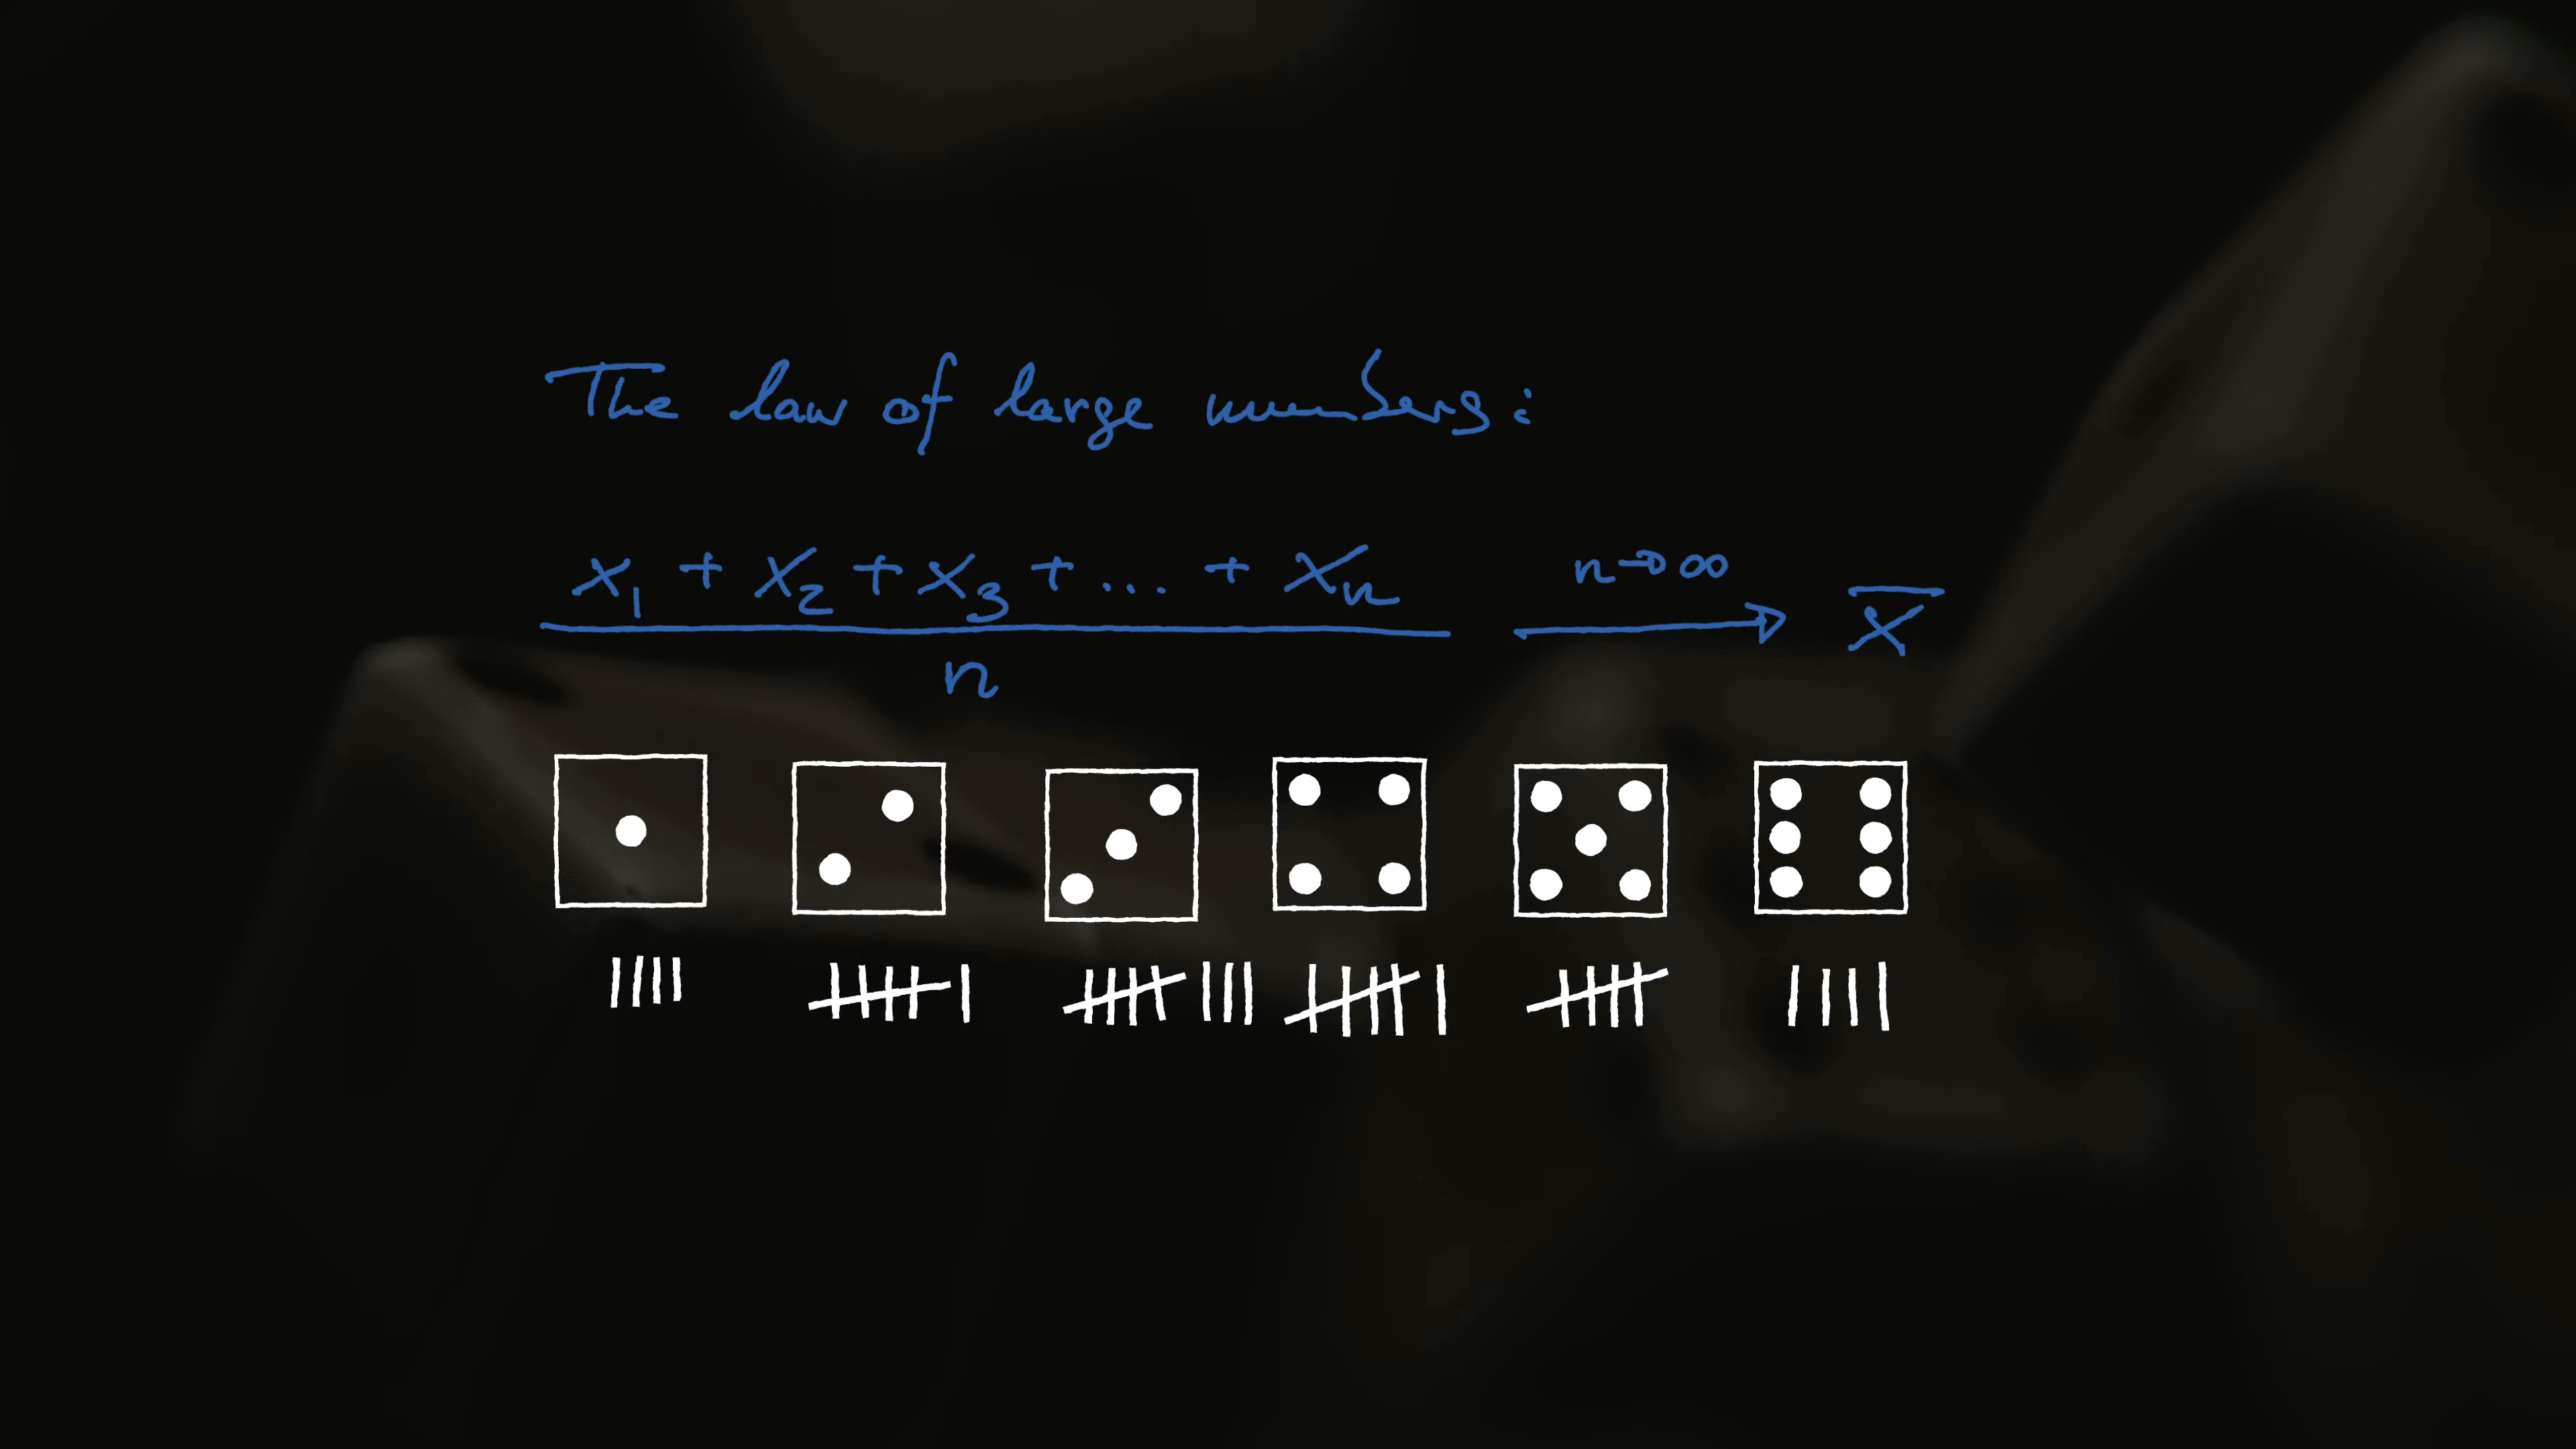 The law of large numbers:
x₁ + x₂ + x₃ + ... + xₙ
n
n→∞
x̅